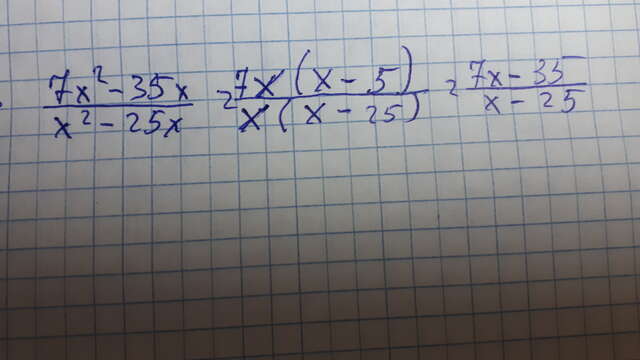 7x² - 35x / x² - 25x = 7x(x - 5) / x(x - 25) = 7x - 35 / x - 25